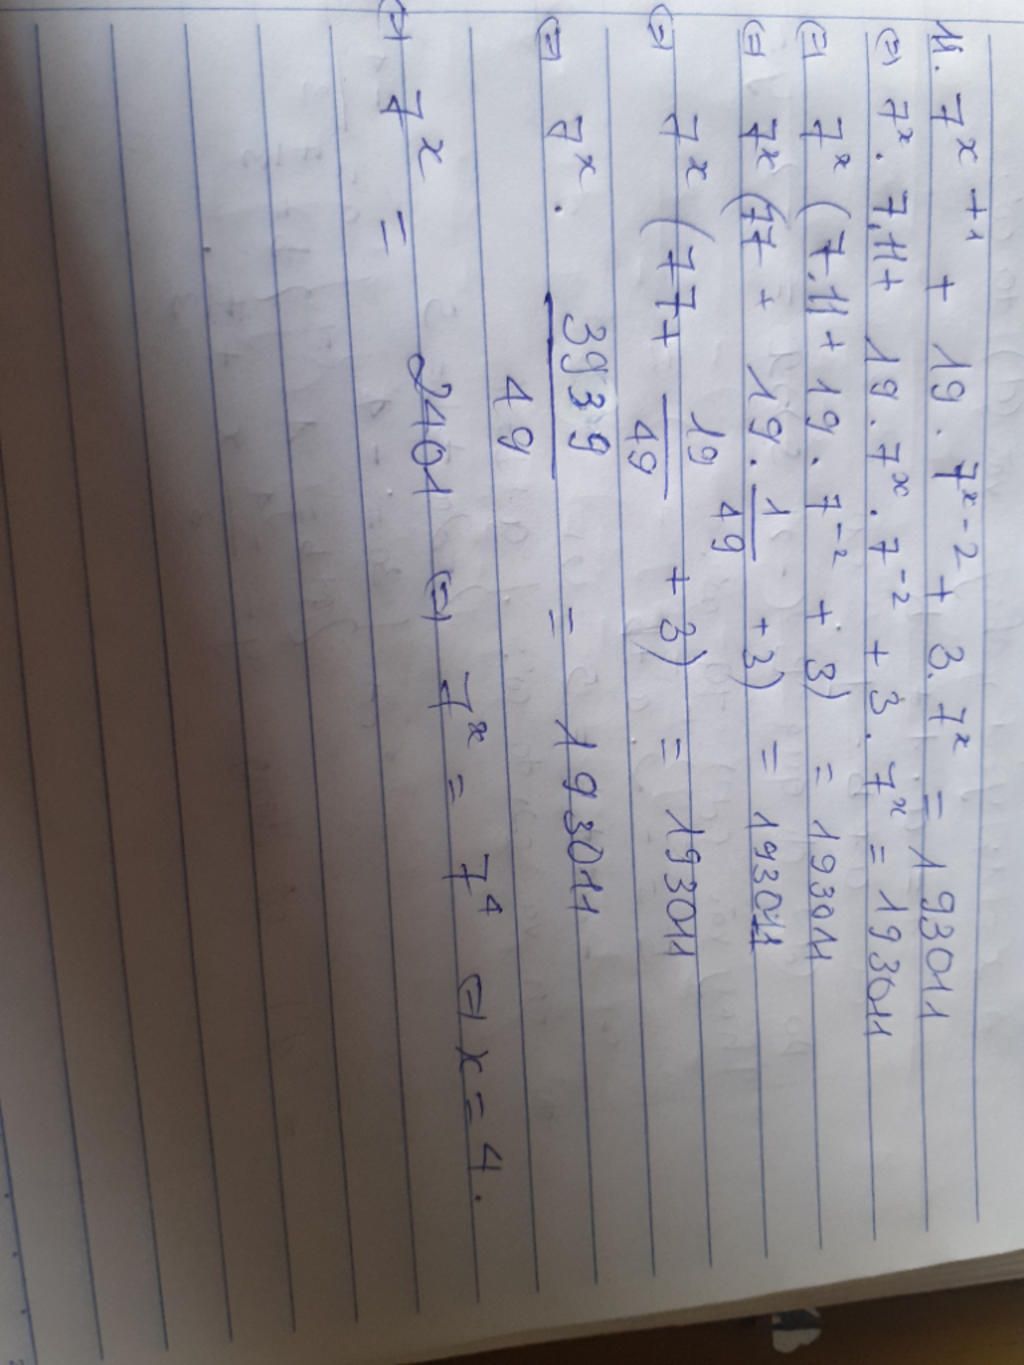 11. 7^{x+1} + 19 . 7^{x-2} + 3. 7^x = 193011
⇔ 7^x . 7.11 + 19 . 7^x . 7^{-2} + 3 . 7^x = 193011
⇔ 7^x (7.11 + 19 . 7^{-2} + 3) = 193011
⇔ 7^x (77 + 19 . 1/49 + 3) = 193011
⇔ 7^x (77 + 19/49 + 3) = 193011
⇔ 7^x . 3939/49 = 193011
⇔ 7^x = 2401 ⇔ 7^x = 7^4 ⇔ x = 4.